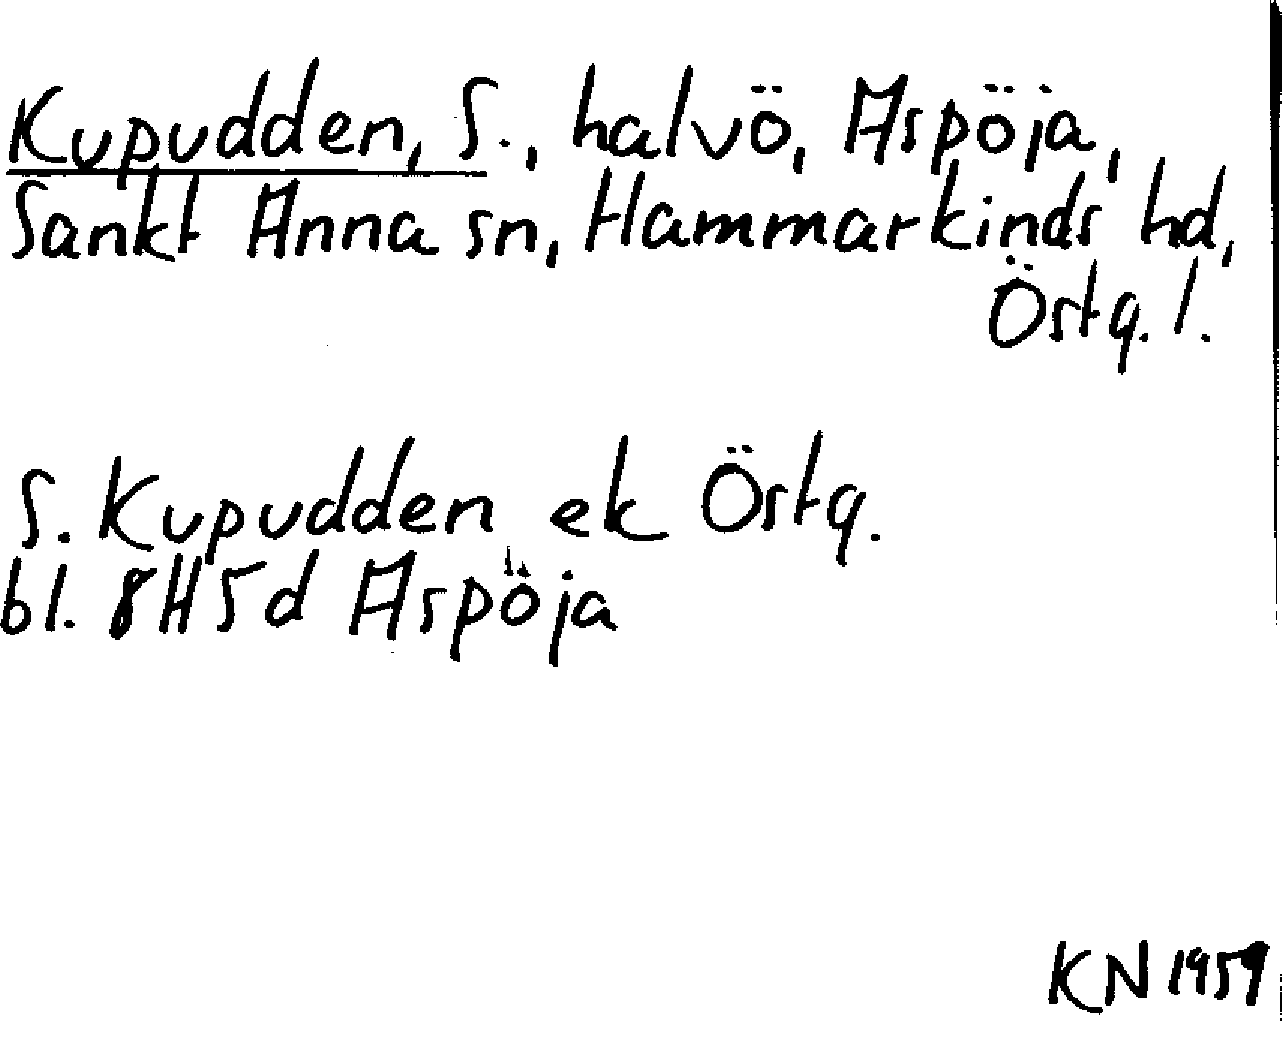 Kupudden, S., halvö, Aspöja,
Sankt Anna sn, Hammarkinds hd,
Östg. l.
S. Kupudden ek Östg.
bl. 8H5d Aspöja
KN 1959